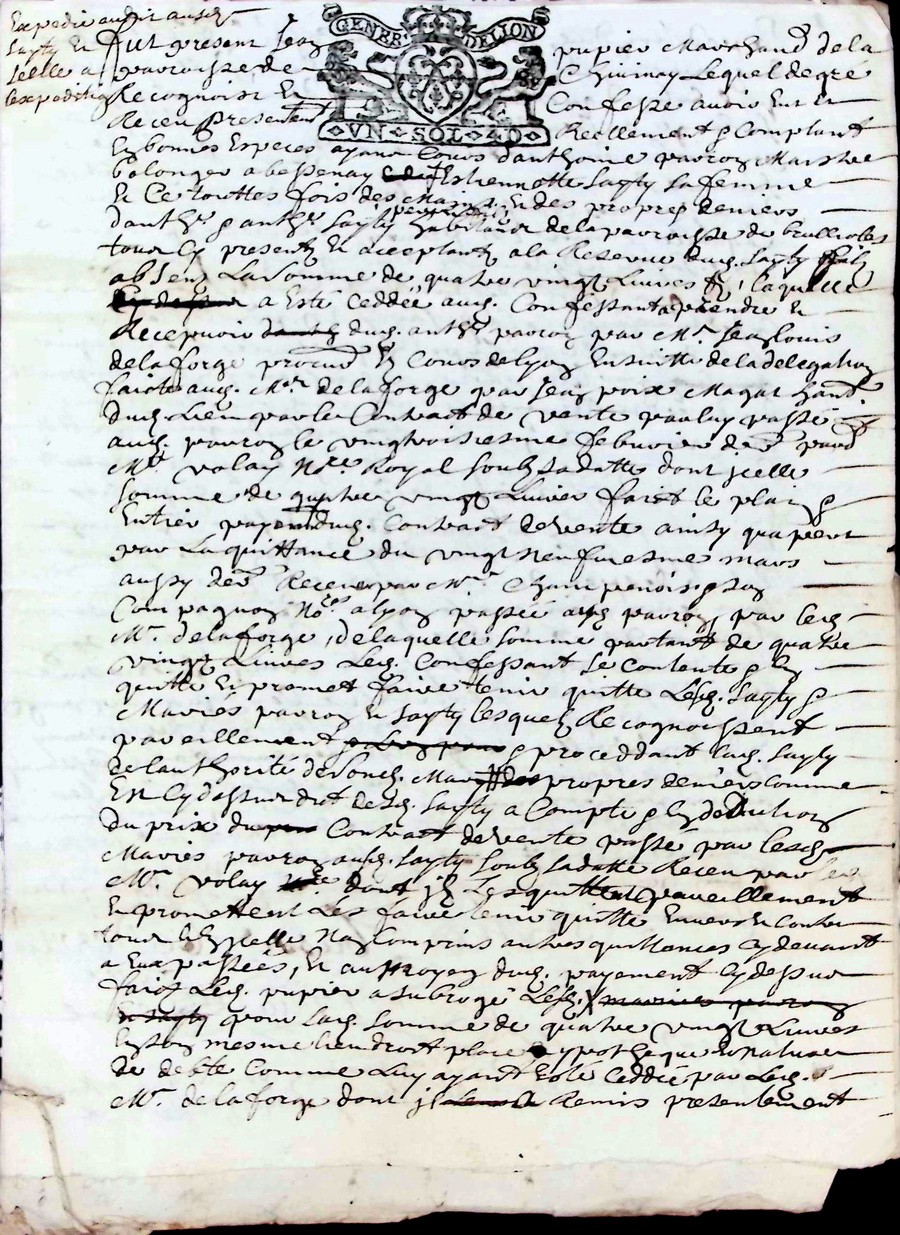 Expedié audit ausd.
Sayty et
jcelle a
lexpedition
GENER. DELION
VN·SOL·4D
fut present Jean papier Marchand de la
parroisse de Chivinay Lequel de gré
Recognoist Et Confesse avoir Eu et
Receu presentement Reellement & Comptant
En bonnes Especes ayant Cours danthoine parroy Marchand
bolonger a bessenay Estiennette Sayty sa femme
Et Ce touttes fois des propres deniers
danthe. & anthe. Sayty habitans de la parroisse de brullioles
tous Cy presentz Et acceptantz a la Reserve dud. Sayty filz
absent La Somme de quatre vingt Livres laquelle
a Esté Ceddée aud. Confessant a prendre Et
Recepvoir dud. anthe. parroy par Mr. Jean Louis
de la forge procur. Es Cours de Lyon Ensuitte de la delegation
faicte aud. Mr. de la forge par Jean poix Magat
dud. Lieu par le Contract de vente par luy passé
aud. parroy le vingtroisiesme febvrier der. pard.
Me. volay Nore. Royal Soubz sa datte dont jcelle
Somme de quatre vingt Livres faict le plain &
Entier payement dud. Contract de vente ainsy quapert
par La quittance du vingt neufviesme mars
aussy der. Receue par Me. Champenois & son
Compagnon Nores. a Lyon passée aud. parroy par led.
Mr. de la forge, de laquelle somme partant de quatre
vingt Livres Led. Confessant se Contente & En
quitte Et promet faire tenir quitte Lesd. Sayty &
Mariés parroy Et Sayty lesquelz Recognoissent
pareillement & proceddant lad. Sayty
de lauthorité de sond. Mary propres deniers comme
Est Cy dessus dit desd. Sayty a Compte & En deduction
du prix du Contract de vente passé par lesd.
Mariés parroy ausd. Sayty Soubz sa datte Receu par led.
Me. volay dont jlz Les quittent pareillement
Et promettent Les faire tenir quitte Envers Et Contre
tous Et En jcelle Nay Comprins autres quittances Cy devant
a Eux passées, Et au moyen dud. payement Cy dessus
faict Led. papier a subrogé Lesd.
pour lad. somme de quatre vingt Livres
En son mesme lieu droit place ypotheque Et nature
de debte Comme Luy ayant Esté Ceddée par Led.
Mr. de la forge dont jl Remis presentement